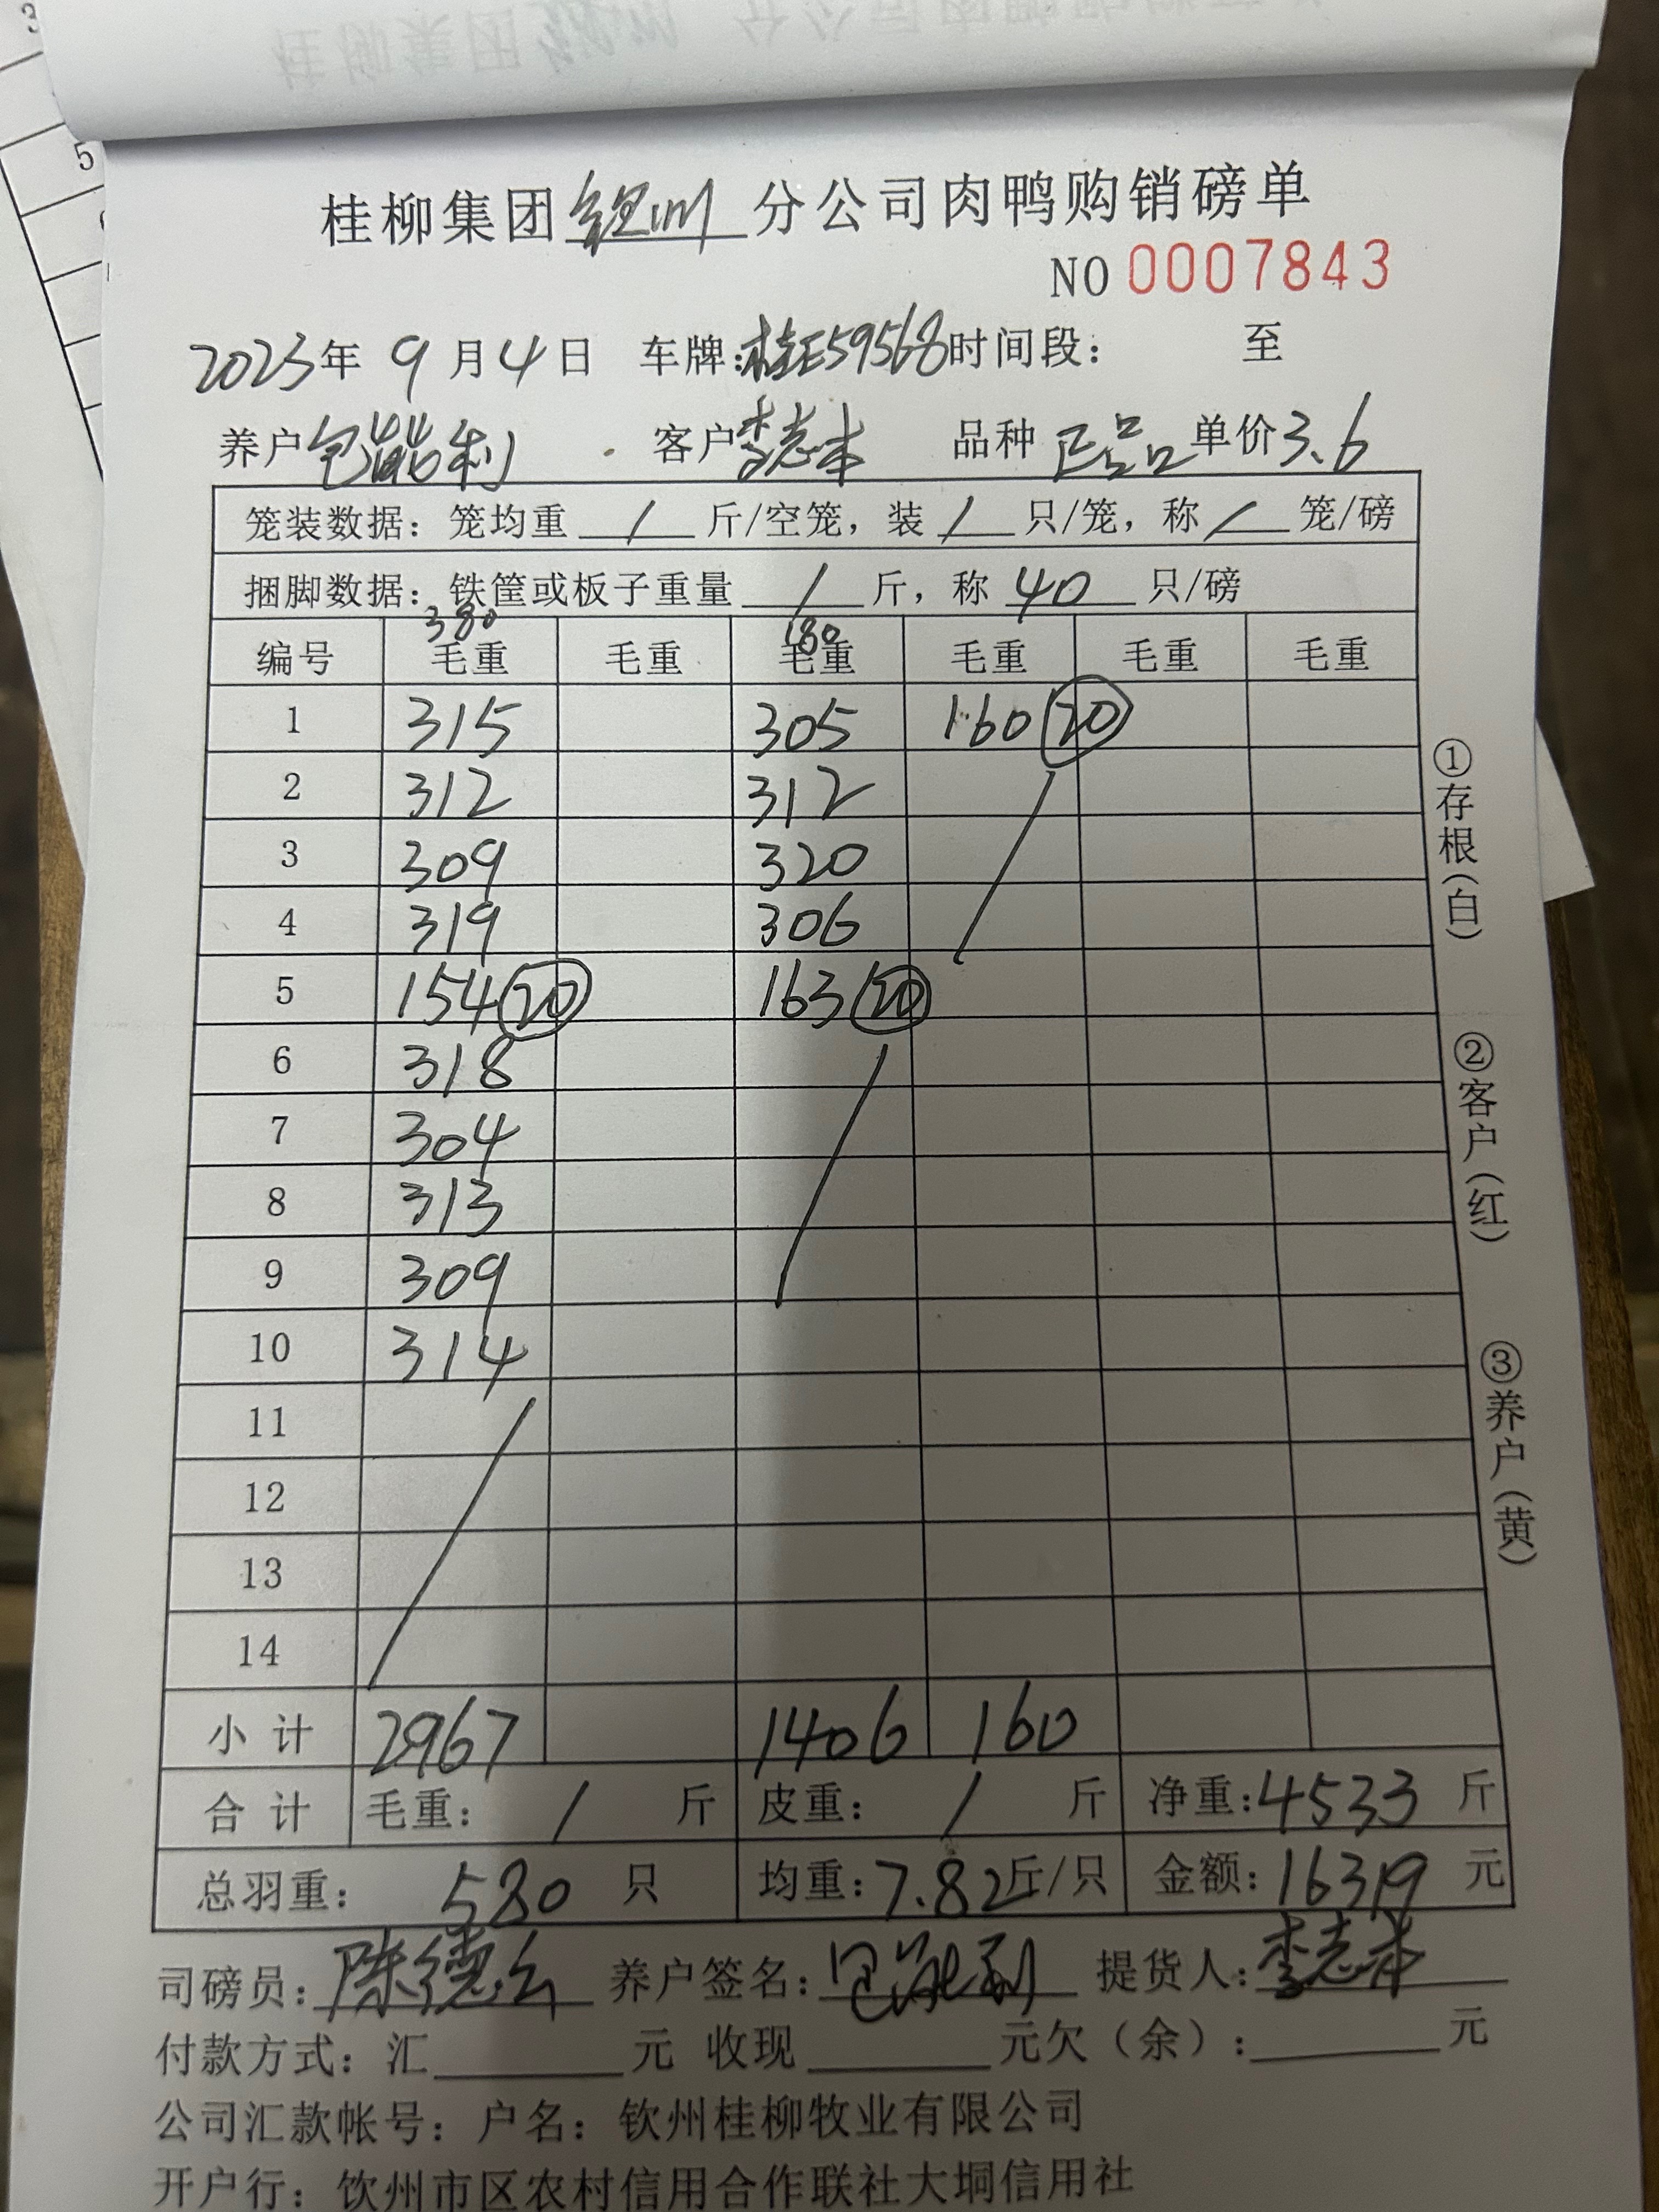 桂柳集团钦州分公司肉鸭购销磅单
NO 0007843
2023年 9月4日 车牌:桂E59568 时间段: 至
养户 包能利 客户 李志本 品种 正品 单价3.6
笼装数据: 笼均重 / 斤/空笼, 装 / 只/笼, 称 / 笼/磅
捆脚数据: 铁筐或板子重量 / 斤, 称 40 只/磅
380 180
编号 毛重 毛重 毛重 毛重 毛重 毛重
1 315 305 160 20
2 312 312
3 309 320
4 319 306
5 154 20 163 20
6 318
7 304
8 313
9 309
10 314
11
12
13
14
小计 2967 1406 160
合计 毛重: / 斤 皮重: / 斤 净重:4533 斤
总羽重: 580 只 均重:7.82斤/只 金额:16319 元
司磅员: 陈德 养户签名: 包能利 提货人: 李志本
付款方式: 汇 元 收现 元欠(余): 元
公司汇款帐号: 户名: 钦州桂柳牧业有限公司
开户行: 钦州市区农村信用合作联社大垌信用社
①存根(白)
②客户(红)
③养户(黄)
3
5